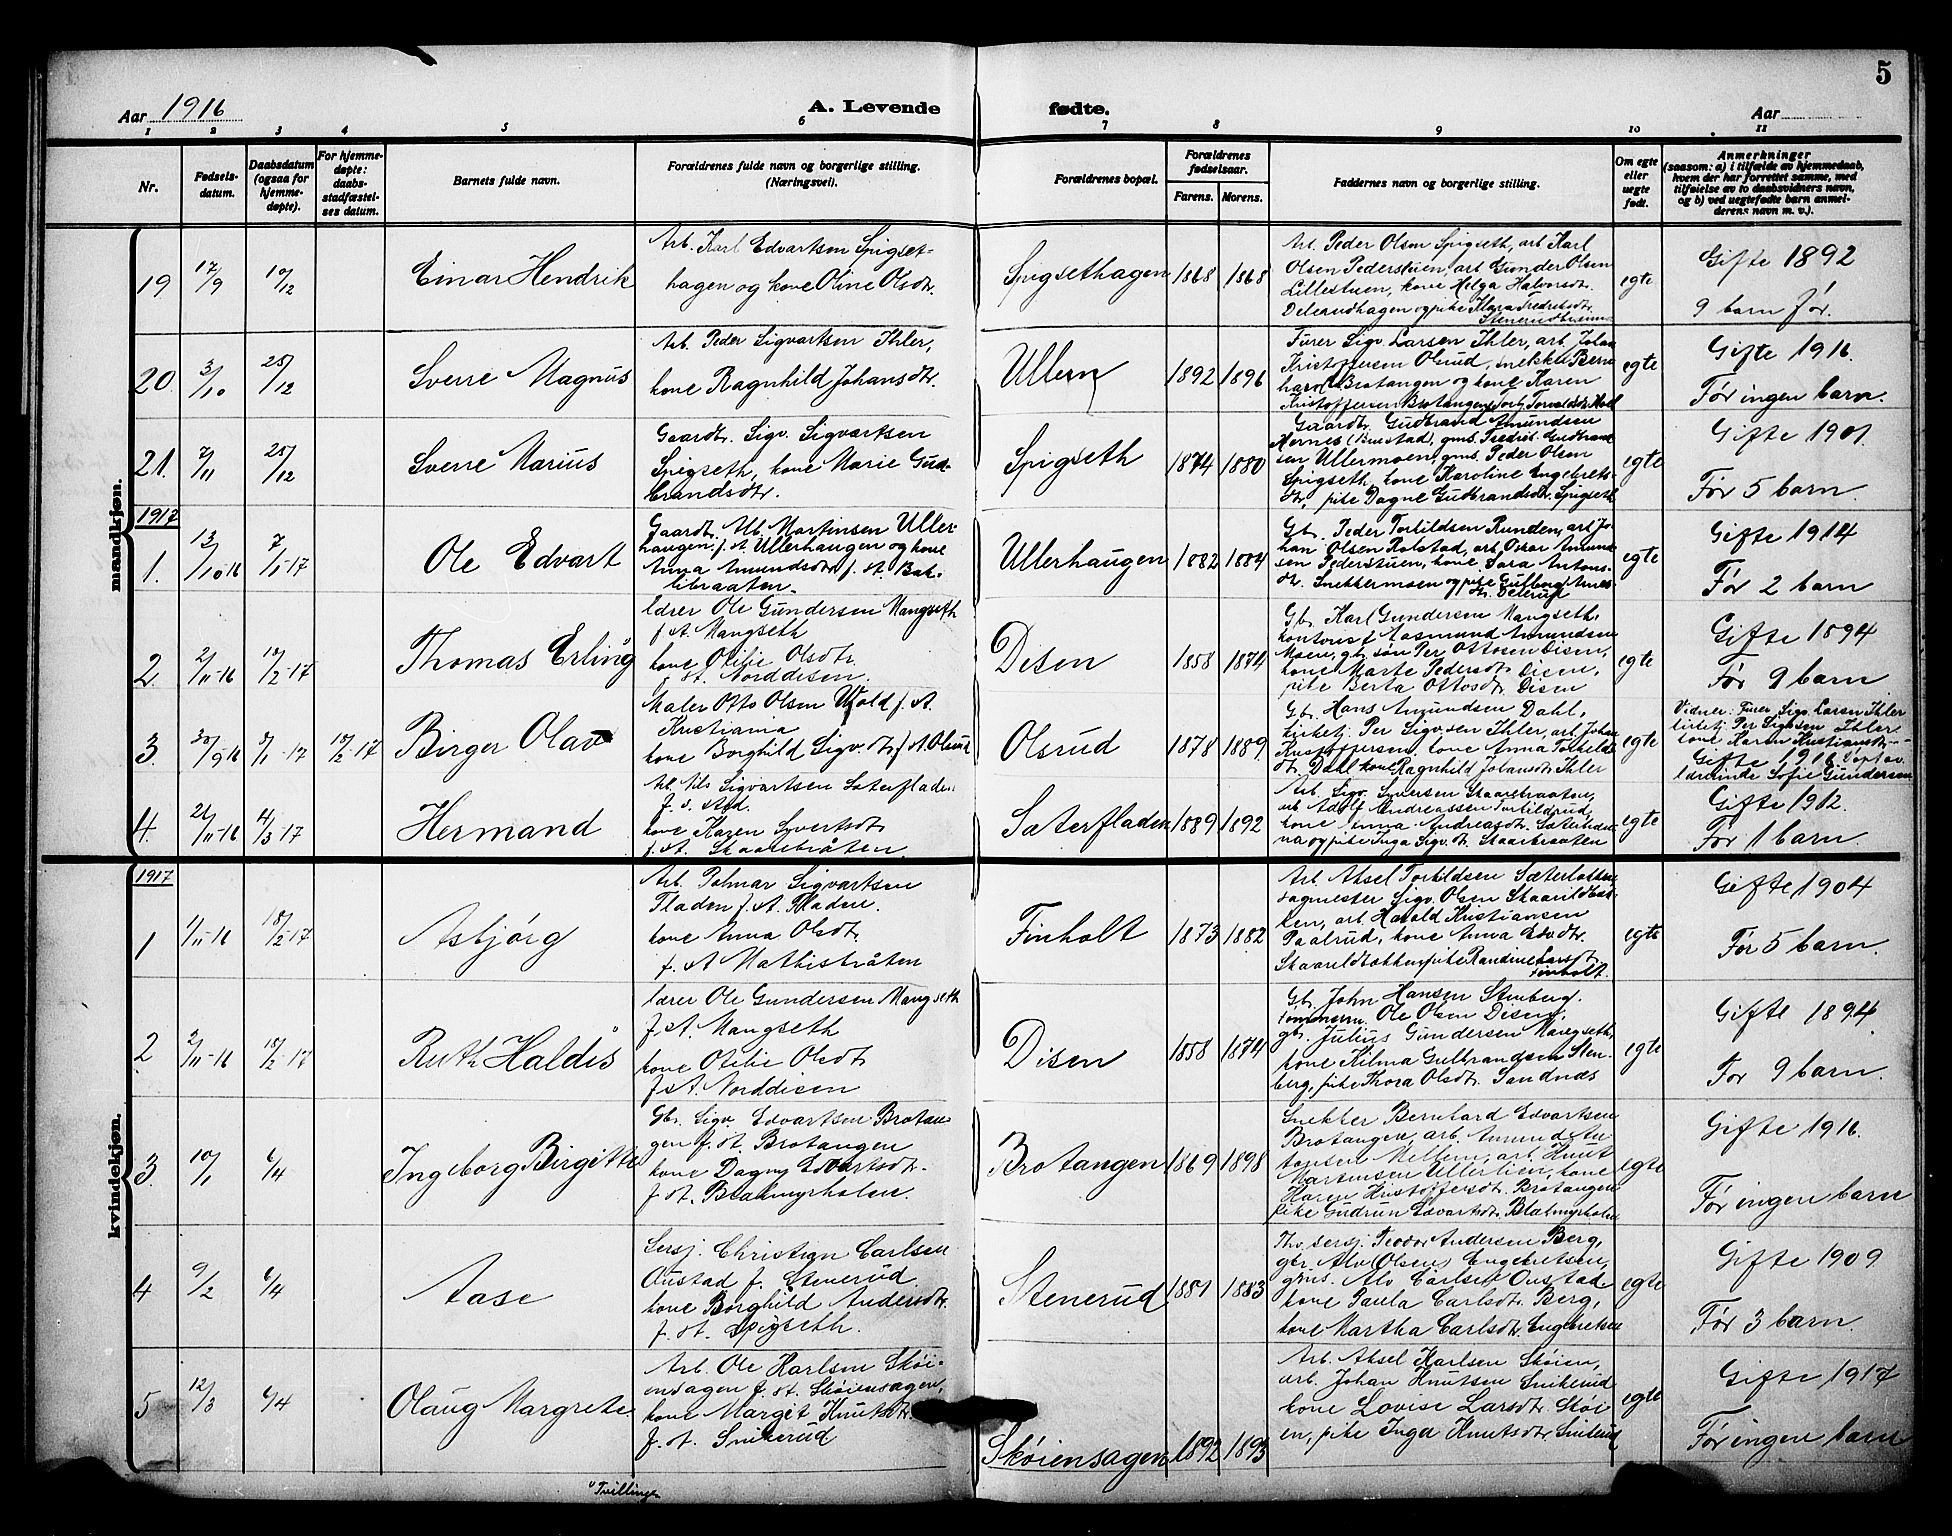 5
Aar 1916
A. Levende
fødte.
Aar
1 2 3 4 5 6 7 8 9 10 11
Nr.
Fødsels-
datum.
Daabsdatum
(ogsaa for
hjemme-
døpte).
For hjemme-
døpte:
daabs-
stadfæstel-
ses datum.
Barnets fulde navn.
Forældrenes fulde navn og borgerlige stilling.
(Næringsvei).
Forældrenes bopæl.
Forældrenes
fødselsaar.
Farens. Morens.
Faddernes navn og borgerlige stilling.
Om egte
eller
uegte
født.
Anmerkninger
(saasom: a) i tilfælde av hjemmedaab,
hvem der har forrettet samme, med
tilføielse av to daabsvidners navn,
og b) ved uegtefødte barn anmel-
derens navn m. v.).
mandkjøn.
19
17/9
10/12
Einar Hendrik
Arb. Karl Edvartsen Spigset-
hagen og kone Oline Olsdtr.
Spigsethagen
1868 1868
Arb. Peder Olsen Spigseth, arb. Karl
Olsen Pederstuen, arb. Gunder Olsen
Lillestuen, kone Helga Halvorsdtr.
egte
Gifte 1892
9 barn før.
20.
3/10
25/12
Sverre Magnus
Arb. Peder Sigvartsen Ihler,
kone Ragnhild Johansdtr.
Ullern
1892 1896
Furer Sigv. Larsen Ihler, arb. Johan
Kristoffersen Olsrud, snekker Bern
hard Brotangen og kone Karen
egte
Gifte 1916.
Før ingen barn.
21.
7/11
25/12
Sverre Marius
Gaardbr. Sigv. Sigvartsen
Spigseth, kone Marie Gud-
brandsdtr.
Spigseth
1874 1880
Gaardbr. Gudbrand Amundsen
Hernes (Bustad), gms. Fredrik Gudbrand
sen Ullermoen, gms. Peder Olsen
Spigseth, kone Karoline Engebrets-
dtr., pike Dagne Gudbrandsdtr. Spigseth
egte
Gifte 1901.
Før 5 barn.
1917
1.
13/10-16
7/1-17
Ole Edvart
Gaardbr. Alb. Martinsen Uller-
haugen, f. st. Ullerhaugen og kone
Anna Amundsdtr. f. st. Bak-
libraaten.
Ullerhaugen
1882 1884
Gb. Peder Torkildsen Runden, arb. Jo-
han Olsen Rolstad, arb. Oskar Amund
sen Pederstuen, kone Sara Antons-
egte
Gifte 1914
Før 2 barn
2.
2/11-16
18/2-17
Thomas Erling
Lærer Ole Gundersen Mangseth
f. st. Mangseth
kone Otilie Olsdtr.
f. st. Norddisen.
Disen
1858 1874
Gb. Karl Gundersen Mangseth,
kontorist Aasmund Amundsen
Moen, gb. søn Per Ottosen Disen,
kone Marte Pedersdtr. Disen,
pike Berta Ottosdtr. Disen
egte
Gifte 1894
Før 9 barn
3
30/9 16
8/1-17
18/2-17
Birger Olav
Maler Otto Olsen Wold f. st.
Kristiania
kone Borghild Sigv. dtr. f. st. Olsrud
Olsrud
1878 1889.
Gb. Hans Amundsen Dahl,
kirketj. Per Sigvsen Ihler, arb. Johan
Kristoffersen, kone Anna Torkilds
dtr. Dahl kone Ragnhild Johansdtr. Ihler
egte
Vidner: Furer Sigv. Larsen Ihler
kirketj. Per Sigvsen Ihler
kone Karen Kristiansdtr.
Gifte 1916. Døpt av
lærerinde Sofie Gundersen
4.
26/11-16
4/3-17
Hermand
Arb. Nils Sigvartsen Sæterfladen
f. s. sted.
kone Karen Syvertsdtr.
f. st. Skaarebråten.
Sæterfladen
1889 1892
Arb. Sigv. Syversen Skaarebraaten,
arb. Adolf Andreassen Torkildrud,
egte
Gifte 1912.
Før 1 barn.
kvindekjøn.
1917
1
1/11-16
18/2-17
Asbjörg
Arb. Polmar Sigvartsen
Fladen f. st. Fladen.
kone Anna Olsdtr.
f. st. Mathisbråten
Finholt
1873 1882
Arb. Aksel Torkildsen Sæterbakken
sagmester Sigv. Olsen Skaarildbak-
ken, arb. Harald Kristiansen
Paalrud, kone Anna Edvdtr.
Skaarildbakken, pike Randine Larsdtr.
Finholt.
egte
Gifte 1904
Før 5 barn.
2
2/11-16
18/2-17
Ruth Haldis
Lærer Ole Gundersen Mangseth
f. st. Mangseth
kone Otilie Olsdtr
f. st. Norddisen
Disen
1858 1874
Gb. John Hansen Stenberg.
tømmerm. Ole Olsen Disen,
gb. Julius Gundersen Mangseth,
kone Hilma Gulbrandsen Sten-
berg, pike Thora Olsdtr. Sandnæs
egte
Gifte 1894.
Før 9 barn.
3.
10/1
6/4
Ingeborg Birgitte
Gbr. Sigv. Edvartsen Brotan-
gen f. st. Brotangen
kone Dagny Edvartsdtr.
f. st. Blålmyrholen.
Brotangen
1869 1898
Snekker Bernhard Edvartsen
Brotangen, arb. Amund An
tonsen Mellem, arb. Knut
Martinsen Ullerlien, kone
Karen Kristoffersdtr. Brotangen
pike Gudrun Edvartsdtr. Blålmyrholen
egte
Gifte 1916.
Før ingen barn
4
9/2
6/4
Aase
Sersj. Christian Carlsen
Oustad f. Stenerud
kone Borghild Andersdtr.
f. st. Spigseth.
Stenerud
1881 1883
sersj. Teodor Andersen Berg,
gbr. Alv Olsens Engebretsen,
gms. Alv Carlsen Oustad
kone Paula Carlsdtr. Berg,
kone Martha Carlsdtr. Engebretsen
egte
Gifte 1909
Før 3 barn.
5
12/3
6/4
Olaug Margrete.
Arb. Ole Karlsen Skøi-
ensagen f. st. Skøiensagen,
kone Margit Knutsdtr.
f. st. Snikerud
Skøiensagen
1892 1893
Arb. Aksel Karlsen Skøien,
arb. Johan Knutsen Snikerud
kone Lovise Larsdtr. Skøi
en, pike Inga Knutsdtr. Snikerud
egte
Gifte 1917
Før ingen barn
Tvillinger